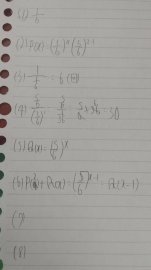 (1) 1/6
(2) P(x) = (1/6)^x (5/6)^{x-1}
(3) 1/(1/6) = 6
(4) (5/6)/(1/6)^2 = (5/6)/(1/36) = 5/6 × 36 = 30
(5) R(x) = (5/6)^x
(6) P(x) + R(x) = (5/6)^{x-1} = R(x-1)
(7)
(8)